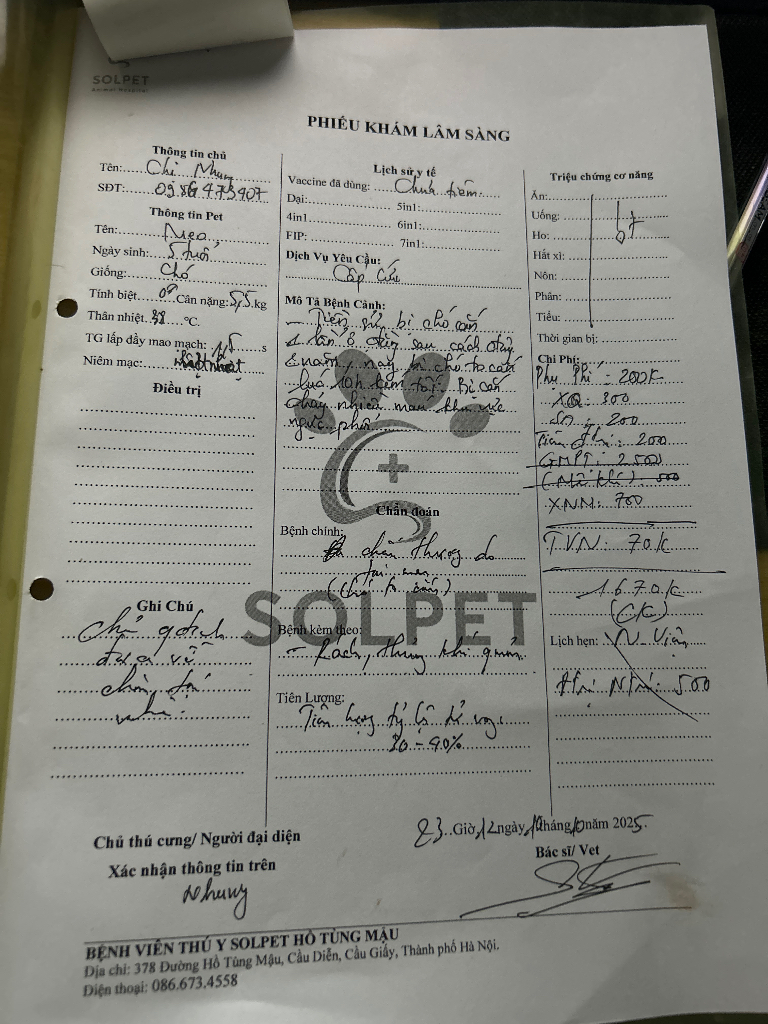 SOLPET
Animal Hospital
PHIẾU KHÁM LÂM SÀNG
Thông tin chủ
Tên: Chị Nhung
SĐT: 0986473407
Thông tin Pet
Tên: Neo
Ngày sinh: 5 tuổi
Giống: Chó
Tính biệt ♂ Cân nặng: 5,5 kg
Thân nhiệt 38 °C.
TG lấp đầy mao mạch: 1,5 s
Niêm mạc: nhợt nhạt
Điều trị
Ghi Chú
Chủ q định
đưa về
tại
nhà.
Lịch sử y tế
Vaccine đã dùng: Chưa tiêm
Dại: 5in1:
4in1 6in1:
FIP: 7in1:
Dịch Vụ Yêu Cầu:
Cấp Cứu
Mô Tả Bệnh Cảnh:
- Tiền sử bị chó cắn
1 lần ở đây
2 năm, nay bị chó to cắn
lúc 10h kém tối. Bị cắn
chảy nhiều máu khu vực
ngực phải
Chẩn đoán
Bệnh chính:
chấn thương do
tai nạn
(chó to cắn)
Bệnh kèm theo:
- Rách, thủng khí quản
Tiên Lượng:
Tiên lượng tỷ lệ tử vong
30 - 90%
Triệu chứng cơ năng
Ăn:
Uống:
Ho:
bt
Hắt xì:
Nôn:
Phân:
Tiểu:
Thời gian bị:
Chi Phí:
Phụ Phí: 200K
XQ: 300
SA: 200
Tiền 200
GMPT: 2.500
(Mê khí): 500
XNM: 700
TVN: 70K
1670K
(CK)
Lịch hẹn: Viện
Ntrú: 500
23 Giờ, 12 ngày tháng 10 năm 2025.
Chủ thú cưng/ Người đại diện
Xác nhận thông tin trên
Nhung
Bác sĩ/ Vet
SOLPET
BỆNH VIỆN THÚ Y SOLPET HỒ TÙNG MẬU
Địa chỉ: 378 Đường Hồ Tùng Mậu, Cầu Diễn, Cầu Giấy, Thành phố Hà Nội.
Điện thoại: 086.673.4558